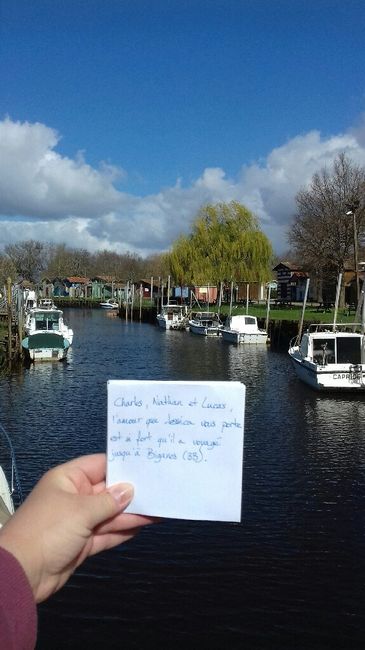 Charles, Nathan et Lucas,
l'amour que Jessica vous porte
est si fort qu'il a voyagé
jusqu'à Biganos (33).
CAPRICE